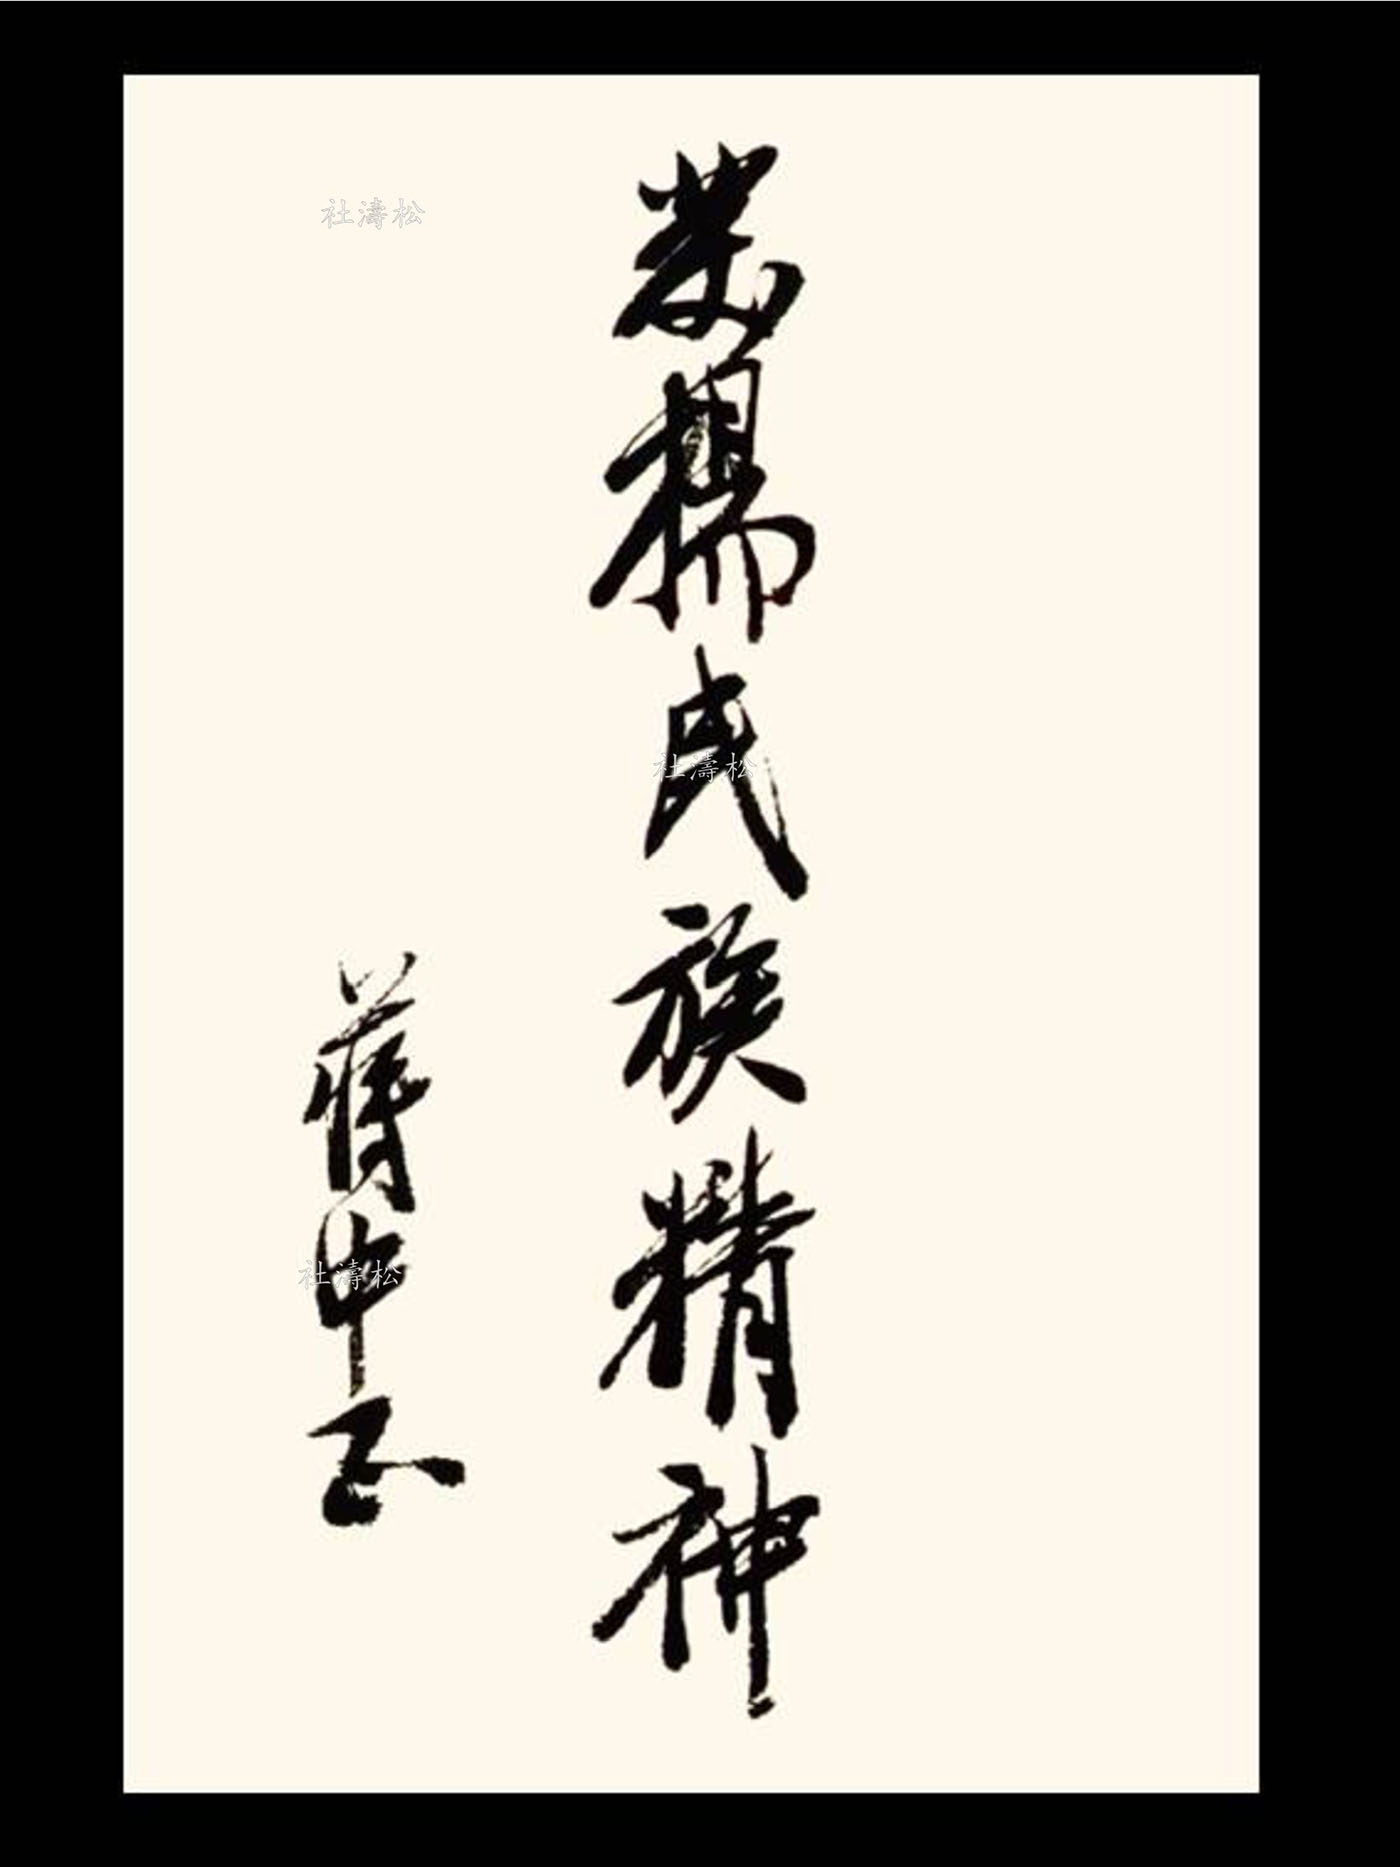 發揚民族精神
蔣中正
社濤松
社濤松
社濤松